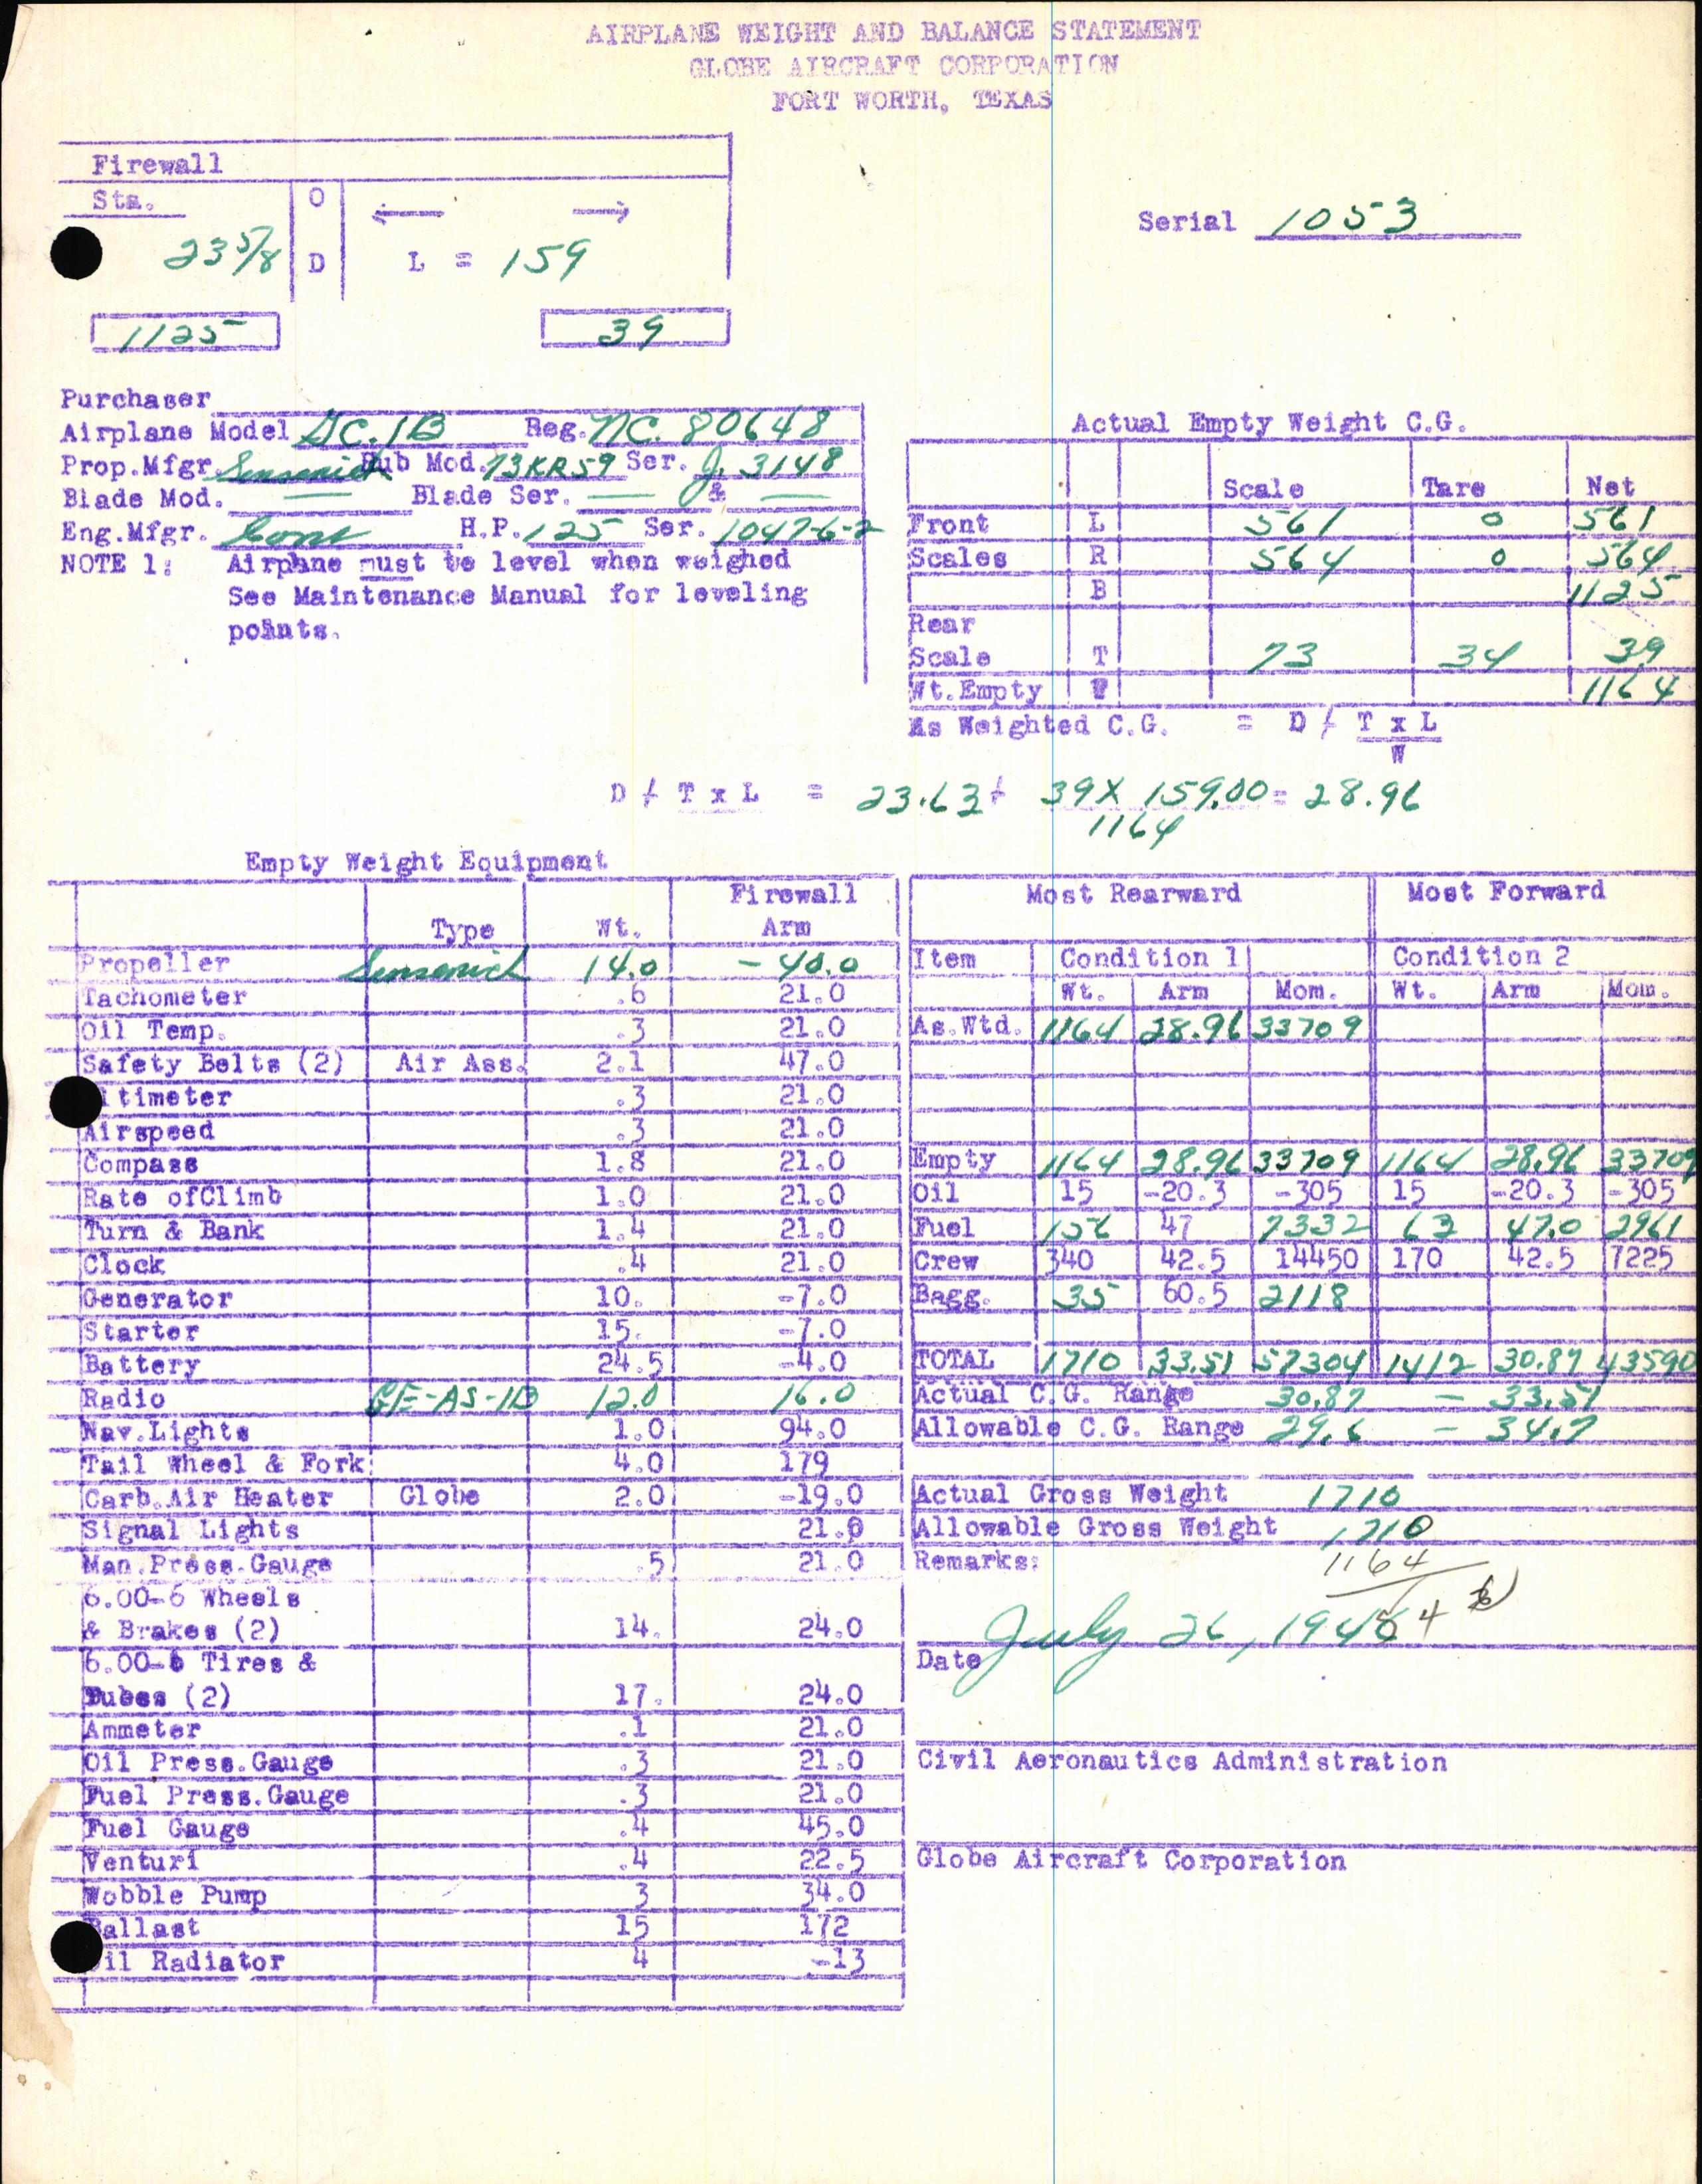 AIRPLANE WEIGHT AND BALANCE STATEMENT
GLOBE AIRCRAFT CORPORATION
FORT WORTH, TEXAS
Firewall
Sta. O
23 5/8 D L = 159
Serial 1053
1125 39
Purchaser
Airplane Model GC.1B Reg. NC. 80648
Prop.Mfgr. Sensenich Hub Mod. 73KR59 Ser. J. 3148
Blade Mod. — Blade Ser. — & —
Eng.Mfgr. Cont H.P. 125 Ser. 1047-6-2
NOTE 1: Airplane must be level when weighed
See Maintenance Manual for leveling
points.
Actual Empty Weight C.G.
Scale Tare Net
Front L 561 0 561
Scales R 564 0 564
B 1125
Rear
Scale T 73 34 39
Wt.Empty W 1164
As Weighted C.G. = D + T x L
W
D + T x L = 23.63 + 39 X 159.00 = 28.96
1164
Empty Weight Equipment
Firewall
Type Wt. Arm
Propeller Sensenich 14.0 -40.0
Tachometer .6 21.0
Oil Temp. .3 21.0
Safety Belts (2) Air Ass. 2.1 47.0
ltimeter .3 21.0
Airspeed .3 21.0
Compass 1.8 21.0
Rate ofClimb 1.0 21.0
Turn & Bank 1.4 21.0
Clock .4 21.0
Generator 10. -7.0
Starter 15. -7.0
Battery 24.5 -4.0
Radio GE-AS-1B 12.0 16.0
Nav.Lights 1.0 94.0
Tail Wheel & Fork 4.0 179
Carb.Air Heater Globe 2.0 -19.0
Signal Lights 21.0
Man.Press.Gauge .5 21.0
6.00-6 Wheels
& Brakes (2) 14. 24.0
6.00-6 Tires &
Tubes (2) 17. 24.0
Ammeter .1 21.0
Oil Press.Gauge .3 21.0
Fuel Press.Gauge .3 21.0
Fuel Gauge .4 45.0
Venturi .4 22.5
Wobble Pump 3 34.0
Ballast 15 172
il Radiator 4 -13
Most Rearward Most Forward
Item Condition 1 Condition 2
Wt. Arm Mom. Wt. Arm Mom.
As.Wtd. 1164 28.96 33709
Empty 1164 28.96 33709 1164 28.96 33709
Oil 15 -20.3 -305 15 -20.3 -305
Fuel 156 47 7332 63 47.0 2961
Crew 340 42.5 14450 170 42.5 7225
Bagg. 35 60.5 2118
TOTAL 1710 33.51 57304 1412 30.87 43590
Actual C.G. Range 30.87 - 33.51
Allowable C.G. Range 29.6 - 34.7
Actual Gross Weight 1710
Allowable Gross Weight 1710
Remarks: 1164
July 26, 194
Date
Civil Aeronautics Administration
Globe Aircraft Corporation